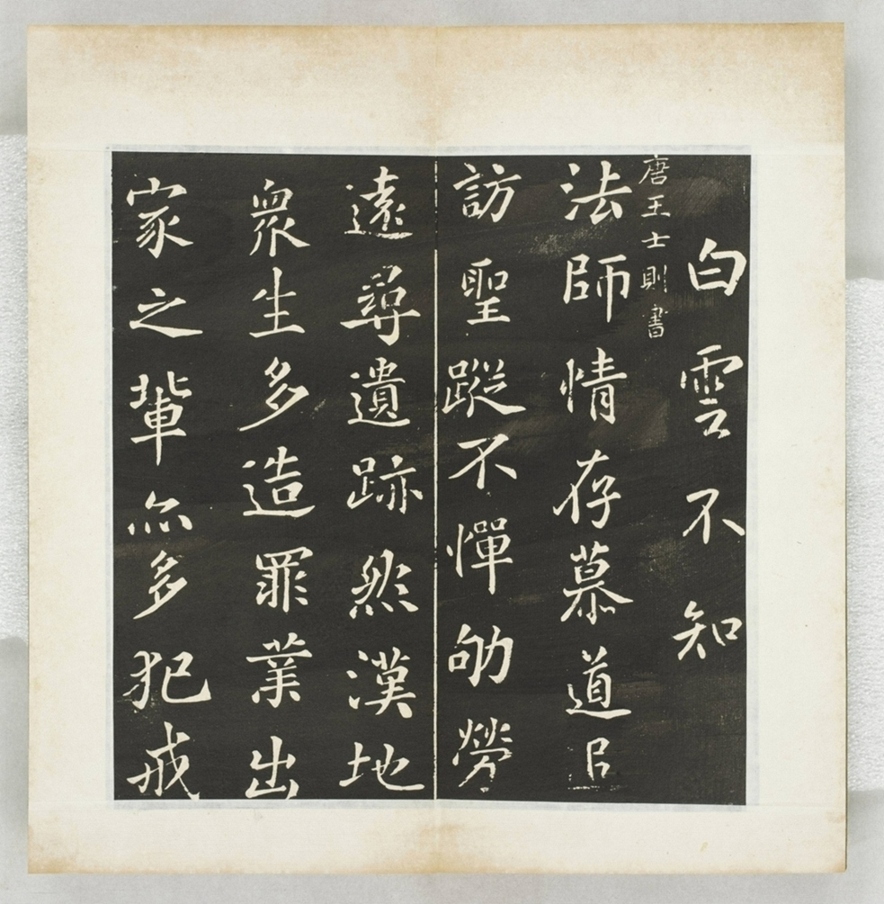 白雲不知
唐王士則書
法師情存慕道追
訪聖蹤不憚劬勞
遠尋遺跡然漢地
衆生多造罪業出
家之輩亦多犯戒